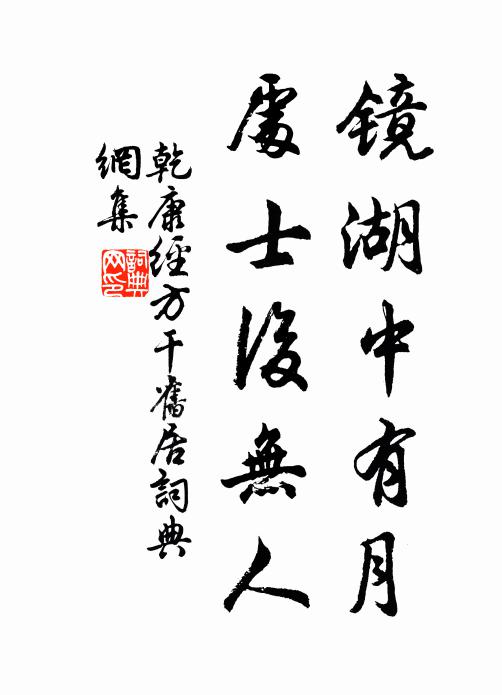 镜湖中有月
處士後無人
乾康經方干舊居詞典
網集
詞典網印